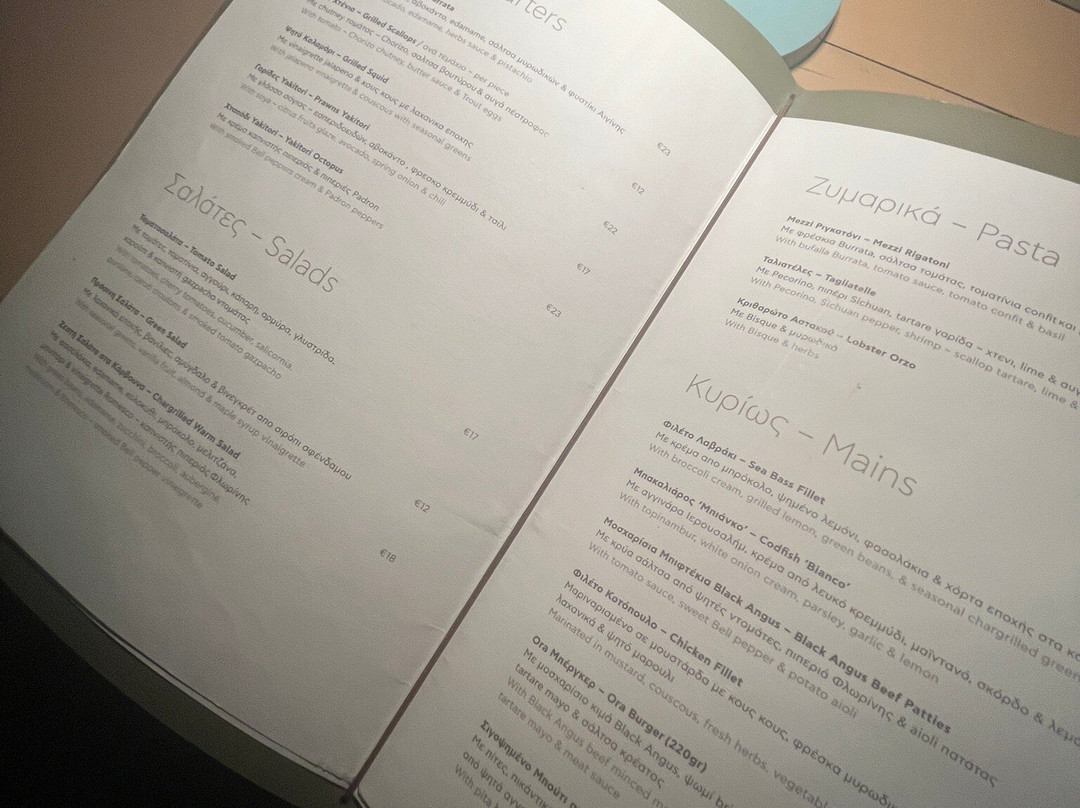 rters
rrata
αβοκάντο, edamame, σάλτσα μυρωδικών & φυστίκι Αιγίνης
cado, edamame, herbs sauce & pistachio
€23
Χτένια – Grilled Scallops / ανά τεμάχιο – per piece
Με chutney τομάτας – Chorizo, σάλτσα βουτύρου & αυγά πέστροφας
With tomato – Chorizo chutney, butter sauce & Trout eggs
€12
Ψητό Καλαμάρι – Grilled Squid
Με vinaigrette jalapeno & κους κους με λαχανικά εποχής
With jalapeno vinaigrette & couscous with seasonal greens
€22
Γαρίδες Yakitori – Prawns Yakitori
Με γλάσσα σόγιας – εσπεριδοειδών, αβοκάντο , φρέσκο κρεμμύδι & τσίλι
With soya – citrus fruits glaze, avocado, spring onion & chili
€17
Χταπόδι Yakitori – Yakitori Octopus
Με κρέμα καπνιστής πιπεριάς & πιπεριές Padron
With smoked Bell peppers cream & Padron peppers
€23
Σαλάτες – Salads
Τοματοσαλάτα – Tomato Salad
Με τομάτες, τοματίνια, αγγούρι, κάπαρη, αρμύρα, γλυστρίδα,
καρότο & καπνιστή gazpacho ντομάτας
With tomatoes, cherry tomatoes, cucumber, salicornia,
purslane, carob & smoked tomato gazpacho
€17
Πράσινη Σαλάτα – Green Salad
Με λαχανικά εποχής, βανίλιες, αμύγδαλο & βινεγκρέτ απο σιρόπι σφένδαμου
With seasonal greens, vanilla fruit, almond & maple syrup vinaigrette
€12
Ζεστή Σαλάτα στα Κάρβουνα – Chargrilled Warm Salad
Με φασολάκια, edamame, κολοκύθι, μπρόκολο, μελιτζάνα,
& vinaigrette Romesco - καπνιστής πιπεριάς Φλωρίνης
With green beans, edamame, zucchini, broccoli, aubergine,
& Romesco – smoked Bell pepper vinaigrette
€18
Ζυμαρικά – Pasta
Μezzi Ριγκατόνι – Mezzi Rigatoni
Με φρέσκια Burrata, σάλτσα τομάτας, τοματίνια confit και
With bufalla Burrata, tomato sauce, tomato confit & basil
Ταλιατέλες – Tagliatelle
Με Pecorino, πιπέρι Sichuan, tartare γαρίδα – χτενι, lime & αυγ
With Pecorino, Sichuan pepper, shrimp – scallop tartare, lime &
Κριθαρώτο Αστακού – Lobster Orzo
Με Bisque & μυρωδικά
With Bisque & herbs
Κυρίως – Mains
Φιλέτο Λαβράκι – Sea Bass Fillet
Με κρέμα απο μπρόκολο, ψημένο λεμόνι, φασολάκια & χόρτα εποχής στα κα
With broccoli cream, grilled lemon, green beans, & seasonal chargrilled green
Μπακαλιάρος 'Μπιάνκο' – Codfish 'Bianco'
Με αγγινάρα Ιερουσαλήμ, κρέμα από λευκό κρεμμύδι, μαϊντανό, σκόρδο & λεμο
With topinambur, white onion cream, parsley, garlic & lemon
Μοσχαρίσια Μπιφτέκια Black Angus – Black Angus Beef Patties
Με κρύα σάλτσα από ψητές ντομάτες, πιπεριά Φλωρίνης & aioli πατάτας
With tomato sauce, sweet Bell pepper & potato aioli
Φιλέτο Κοτόπουλο – Chicken Fillet
Μαριναρισμένο σε μουστάρδα με κους κους, φρέσκα μυρωδι
λαχανικά & ψητό μαρούλι
Marinated in mustard, couscous, fresh herbs, vegetabl
Ora Μπέργκερ – Ora Burger (220gr)
Με μοσχαρίσιο κιμά Black Angus, ψωμί br
tartare mayo & σάλτσα κρέατος
With Black Angus beef minced m
tartare mayo & meat sauce
Σιγοψημένο Μπούτι α
Με πίτες, πικάντικ
από ψητό αγγ
With pita b